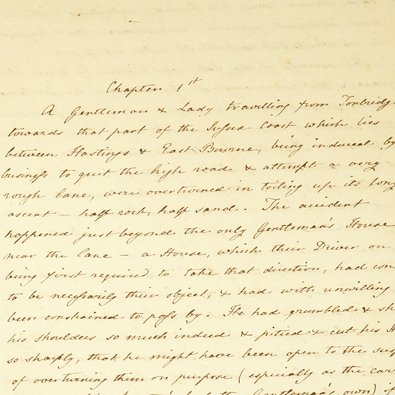 Chapter 1st
A Gentleman & Lady travelling from Tonbridge
towards that part of the Sussex Coast which lies
between Hastings & East Bourne, being induced by
business to quit the high road & attempt a very
rough lane, were overturned in toiling up its long
ascent – half rock, half sand. The accident
happened just beyond the only Gentleman's House
near the Lane – a House, which their Driver on
being first required to take that direction, had con
to be necessarily their object, & had with unwilling
been constrained to pass by. He had grumbled & sh
his shoulders so much indeed & pitied & cut his H
so sharply, that he might have been open to the sus
of overturning them on purpose (especially as the car
Gentleman's own) if